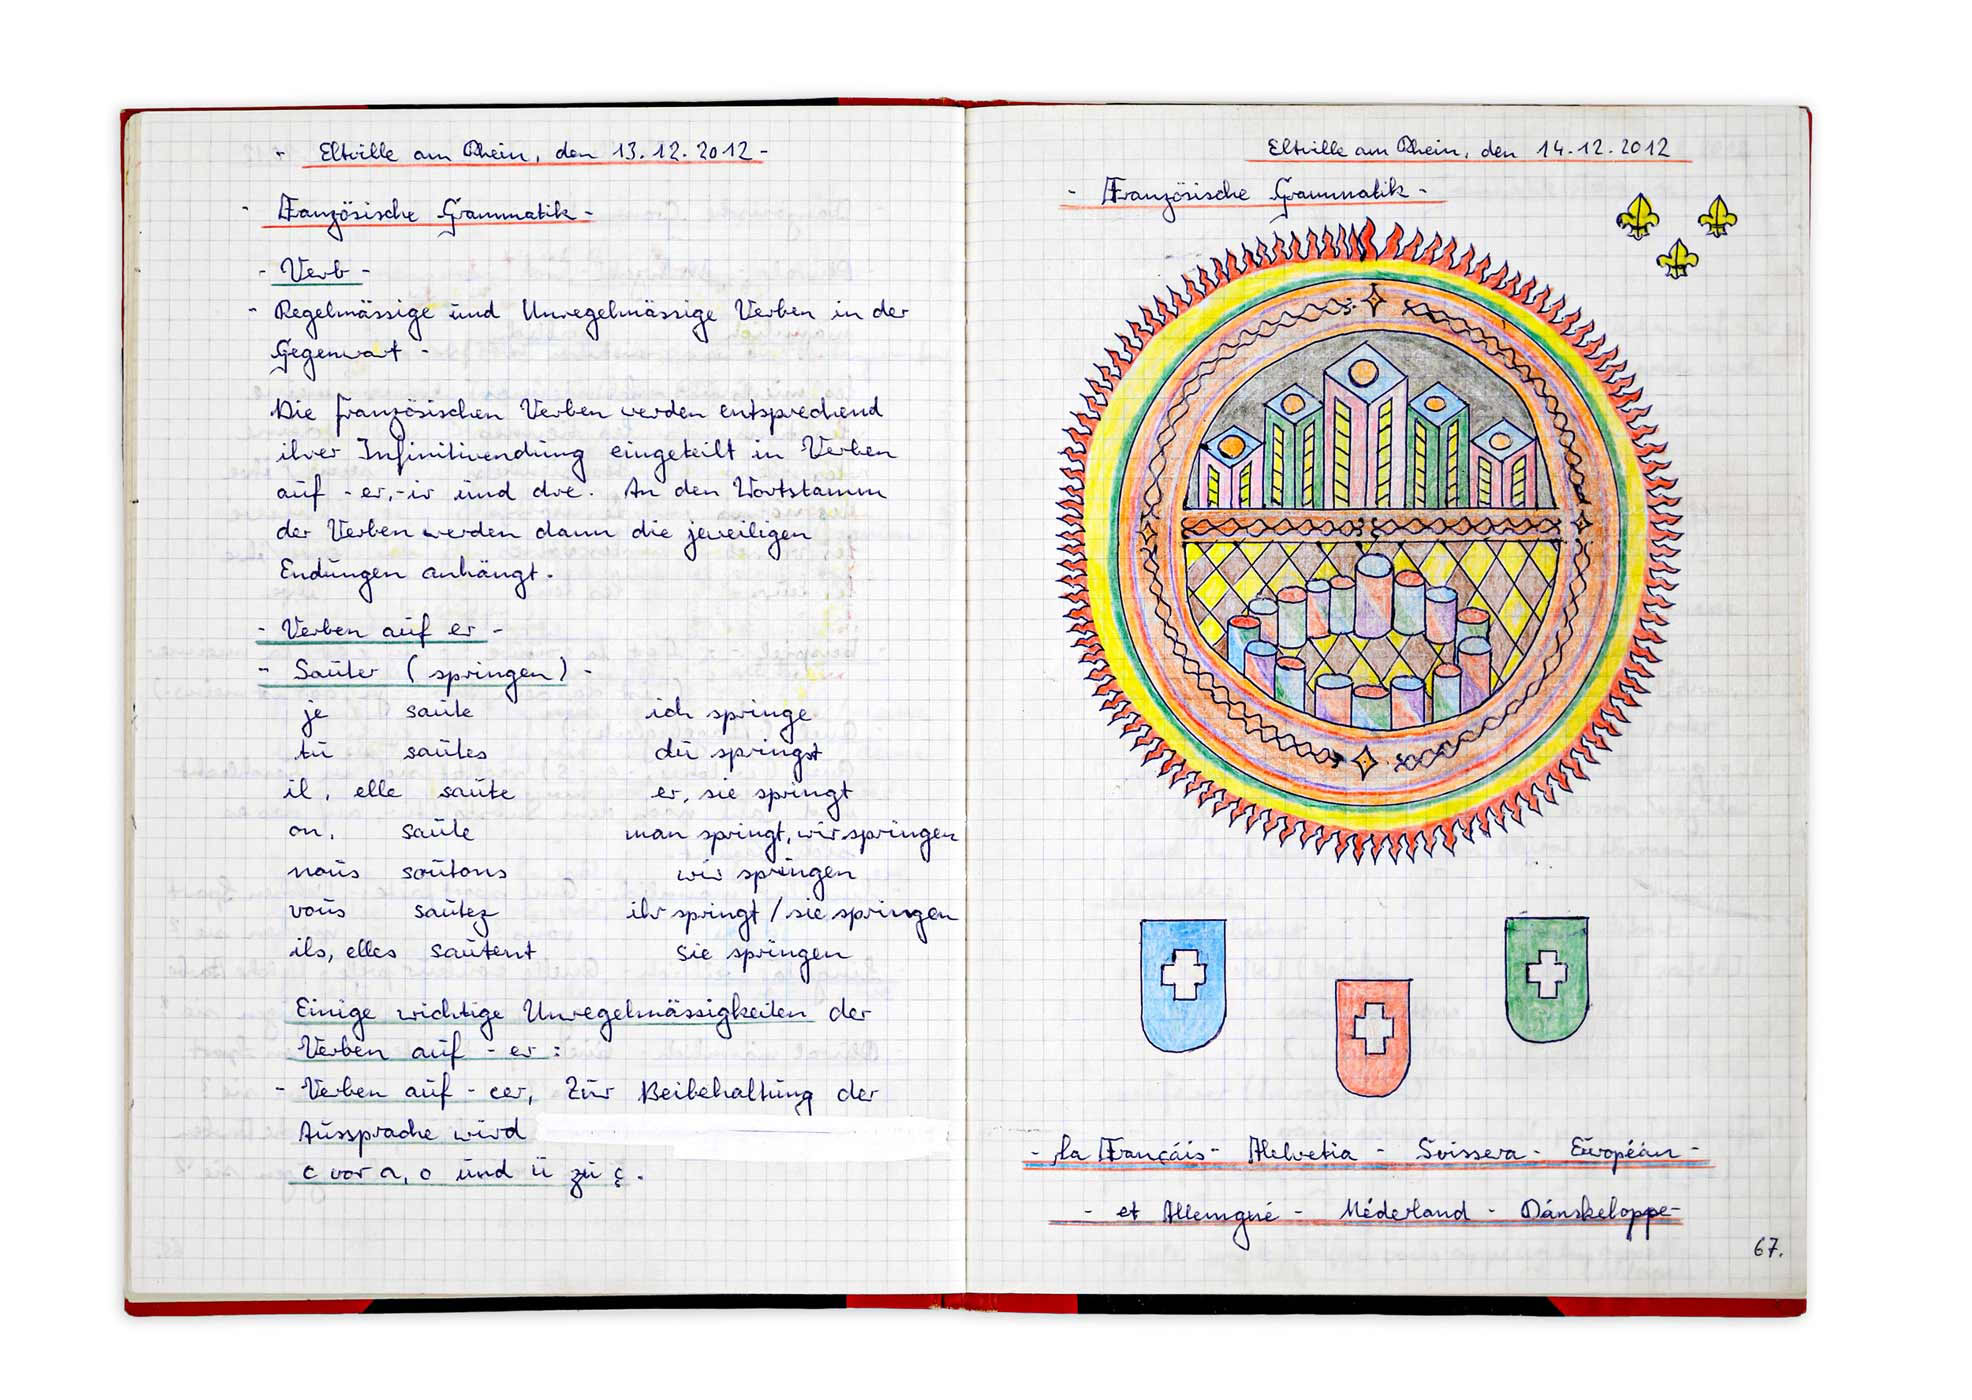 - Eltville am Rhein, den 13.12.2012 -
- Französische Grammatik -
- Verb -
- Regelmässige und Unregelmässige Verben in der
Gegenwart -
Die französischen Verben werden entsprechend
ihrer Infinitivendung eingeteilt in Verben
auf - er, -ir und dre. An den Wortstamm
der Verben werden dann die jeweiligen
Endungen anhängt.
- Verben auf er -
- Sauter (springen) -
je saute ich springe
tu sautes du springst
il, elle saute er, sie springt
on, saute man springt, wir springen
nous sautons wir springen
vous sautez ihr springt / sie springen
ils, elles sautent sie springen
Einige wichtige Unregelmässigkeiten der
Verben auf - er :
- Verben auf - cer, Zur Beibehaltung der
Aussprache wird
c vor a, o und u zu ç.
Eltville am Rhein, den 14.12.2012
- Französische Grammatik -
- la Françáis - Helvetia - Suissera - Européán -
- et Allemgné - Néderland - Dánskeloppe -
67.